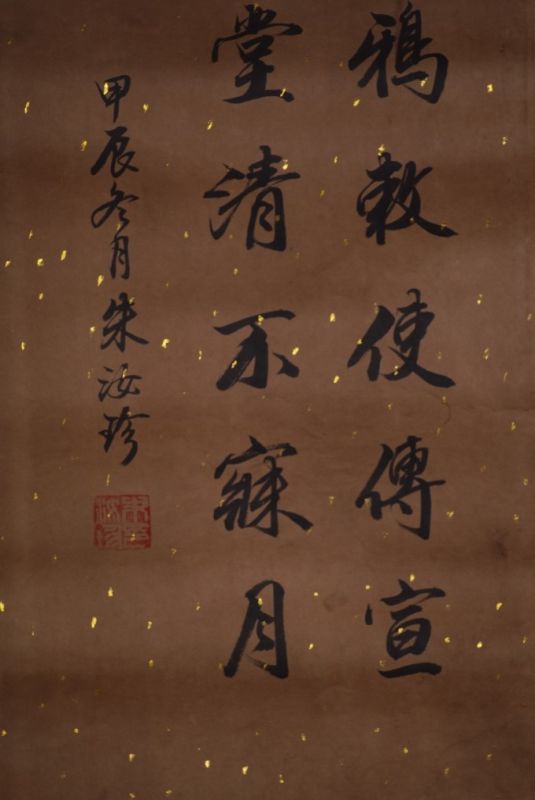 鴉敕使傳宣
堂清不寐月
甲辰冬月朱汝珍